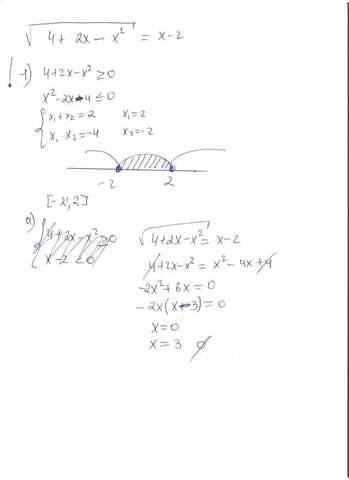 √(4 + 2x − x²) = x − 2
! 1) 4 + 2x − x² ≥ 0
x² − 2x − 4 ≤ 0
{ x₁ + x₂ = 2 x₁ = 2
x₁ x₂ = −4 x₂ = −2
−2 2
[−2; 2]
a) { 4 + 2x − x² ≥ 0
x − 2 < 0
√(4 + 2x − x²) = x − 2
4 + 2x − x² = x² − 4x + 4
−2x² + 6x = 0
−2x(x − 3) = 0
x = 0
x = 3 ∅